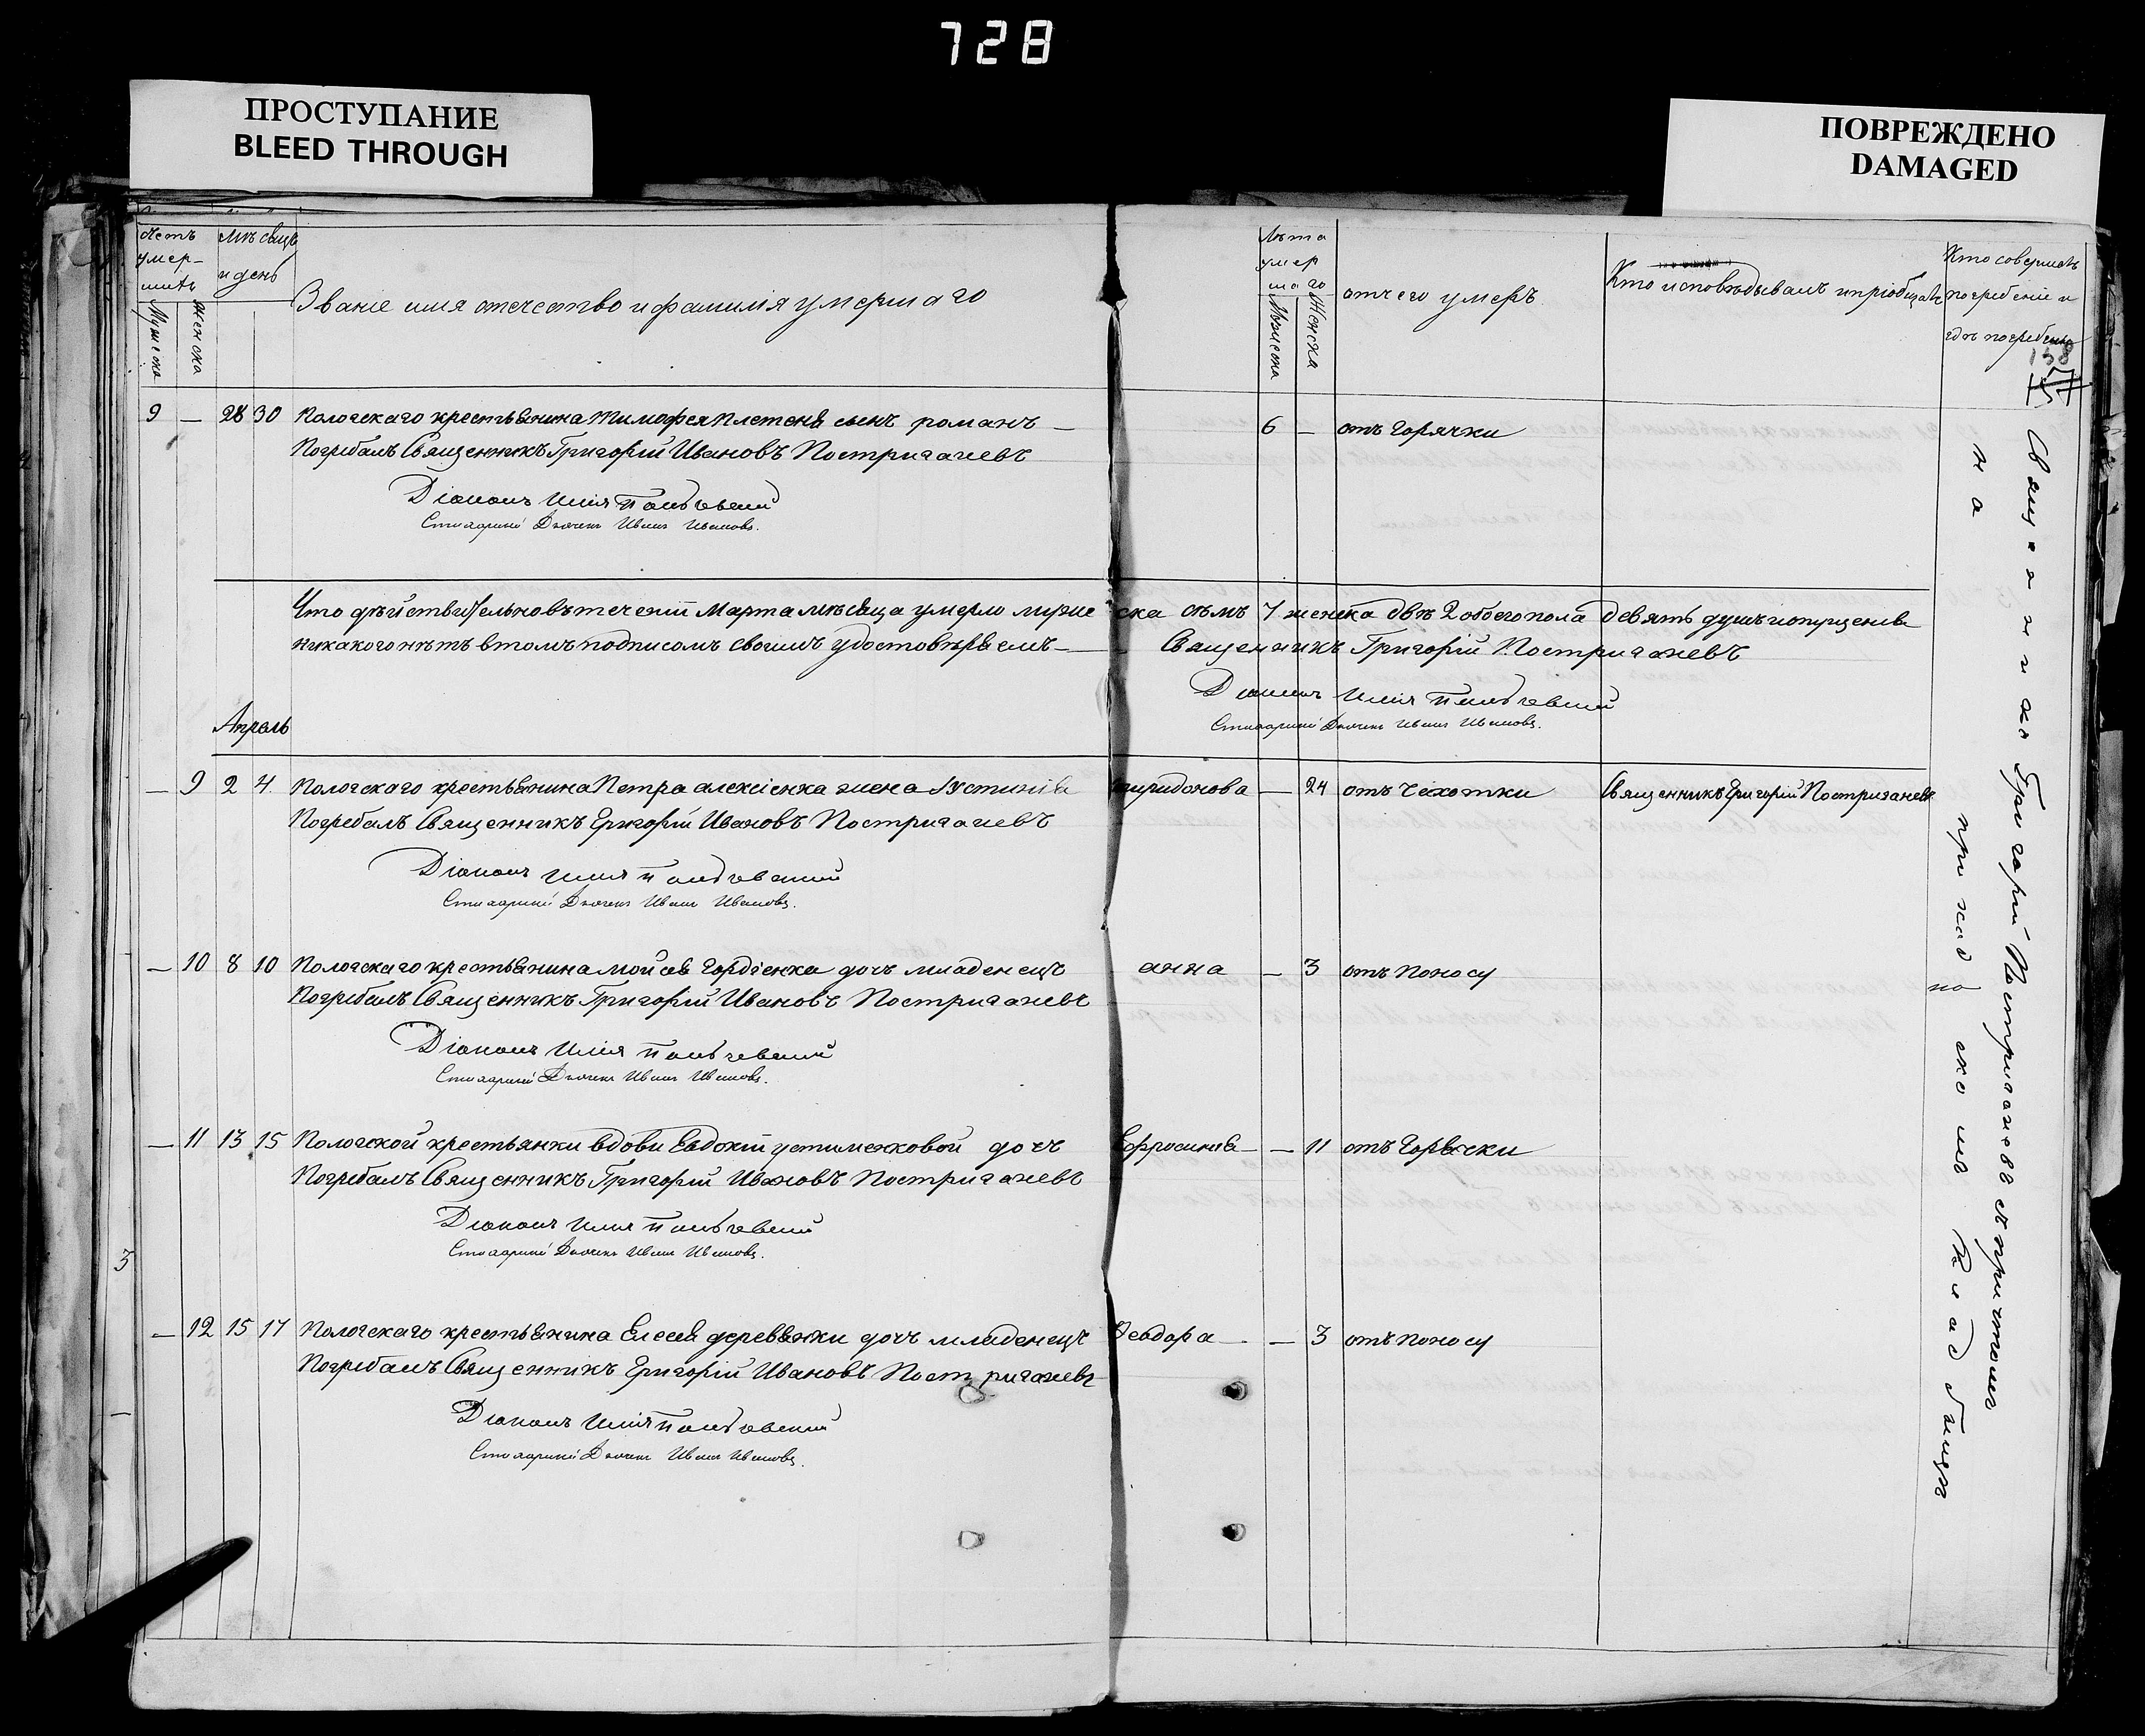 728
ПРОСТУПАНИЕ
BLEED THROUGH
ПОВРЕЖДЕНО
DAMAGED
Счетъ умершихъ
Мужеска
Женска
Мѣсяцъ и день
Званіе имя отечество и фамилія умершаго
Лѣта умершаго
Мужеска
Женска
отчего умеръ
Кто исповѣдывалъ и пріобщалъ
Кто совершалъ погребеніе и гдѣ погребены
158
9 — 28 30 Пологскаго крестьянина Тимофея Плетеня сынъ романъ — 6 — отъ горячки
Погребалъ Священникъ Григорій Ивановъ Постригачевъ
Діаконъ Илія
Стихарный Дьячекъ Иванъ Ивановъ.
Что дѣйствительно въ теченіи Марта мѣсяца умерло мужеска сѣмъ 7 женска двѣ 2 обоего пола девять душъ и опущенія
никакого нѣтъ втомъ подписомъ своимъ удостовѣряемъ — Священникъ Григорій Постригачевъ
Діаконъ Илія
Стихарный Дьячекъ Иванъ Ивановъ.
Апрель
— 9 2 4 Пологскаго крестьянина Петра алексіенка жена Іустинія спиридонова — 24 отъ чахотки Священникъ Григорій Постригачевъ
Погребалъ Священникъ Григорій Ивановъ Постригачевъ
Діаконъ Илія
Стихарный Дьячекъ Иванъ Ивановъ.
— 10 8 10 Пологскаго крестьянина мойсея Гордіенка дочъ младенецъ анна — 3 отъ поносу
Погребалъ Священникъ Григорій Ивановъ Постригачевъ
Діаконъ Илія
Стихарный Дьячекъ Иванъ Ивановъ.
— 11 13 15 Пологской крестьянки вдови Евдокіи устименковой дочъ Ефросинія — — 11 отъ Горячки
Погребалъ Священникъ Григорій Ивановъ Постригачевъ
Діаконъ Илія
Стихарный Дьячекъ Иванъ Ивановъ.
3
— 12 15 17 Пологскаго крестьянина Елесея деревянки дочъ младенецъ Феодора — — 3 отъ поносу
Погребалъ Священникъ Григорій Ивановъ Постригачевъ
Діаконъ Илія
Стихарный Дьячекъ Иванъ Ивановъ.
Священника Григорій Постригачевъ съ причтомъ
на приходскомъ кладбищѣ